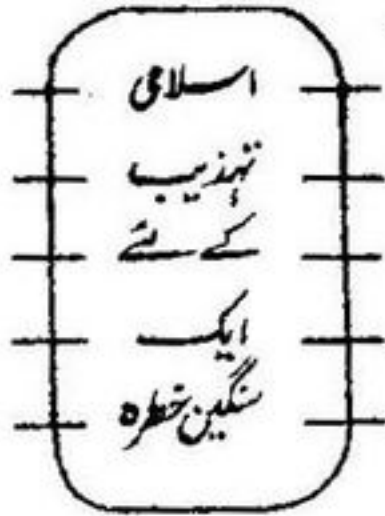 اسلامی
تہذیب
کے لئے
ایک
سنگین خطرہ